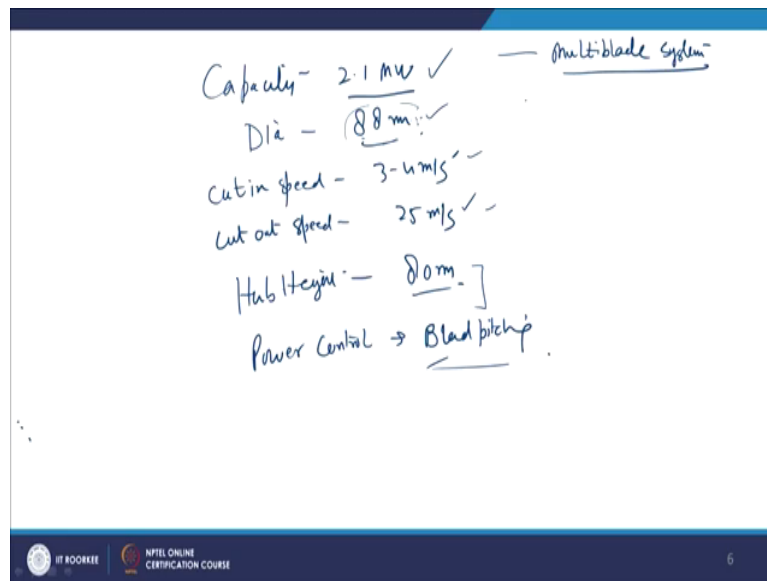 Capacity - 2.1 MW ✓ — multiblade system
Dia - 88 m ✓
Cut in speed - 3-4 m/s
Cut out speed - 25 m/s ✓
Hub Height - 80 m.
Power Control → Blad pitchg
IIT ROORKEE NPTEL ONLINE
CERTIFICATION COURSE 6